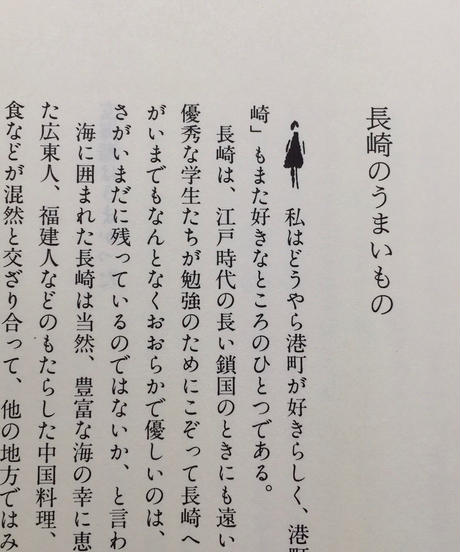 長崎のうまいもの
私はどうやら港町が好きらしく、港町
崎」もまた好きなところのひとつである。
長崎は、江戸時代の長い鎖国のときにも遠い
優秀な学生たちが勉強のためにこぞって長崎へ
がいまでもなんとなくおおらかで優しいのは、
さがいまだに残っているのではないか、と言わ
海に囲まれた長崎は当然、豊富な海の幸に恵
た広東人、福建人などのもたらした中国料理、
食などが混然と交ざり合って、他の地方ではみ